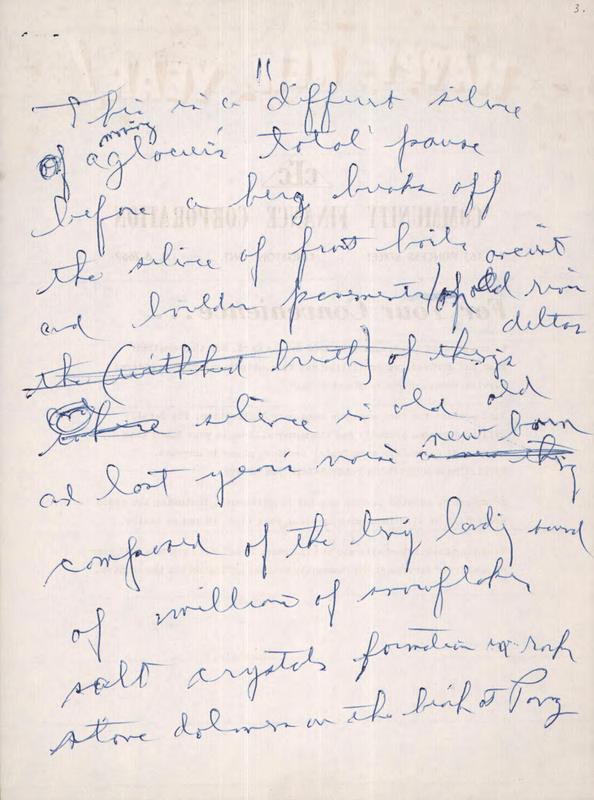 3.
"
This is a different silence
moving
of a glacier's total pause
before a berg breaks off
the silence of frost boils
ancient
and boulder pavements / of old river
deltas
the (withheld breath) of things
where silence is old old
new born
and last year's noise is new thing
composed of the tiny sound
of millions of snowflakes
salt crystals rock
stone dolmens on the beach at Pang